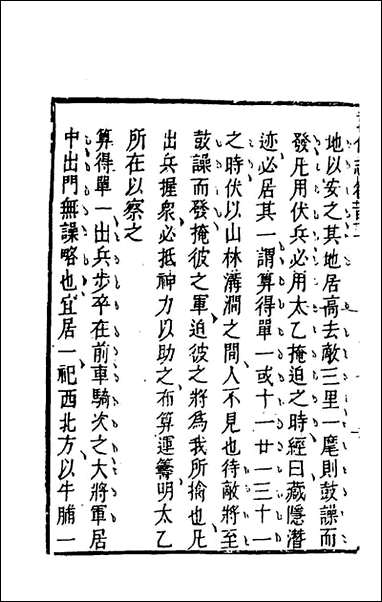 地以安之其地居高去敵三里一麾則鼓譟而
發凡用伏兵必用太乙掩迫之時經曰藏隱潛
迹必居其一謂算得單一或十一廿一三十一
之時伏以山林溝澗之間人不見也待敵將至
鼓譟而發掩彼之軍迫彼之將為我所擒也凡
出兵握衆必抵神力以助之布算運籌明太乙
所在以察之
算得單一出兵步卒在前車騎次之大將軍居
中出門無譟略也宜居一祀西北方以牛脯一